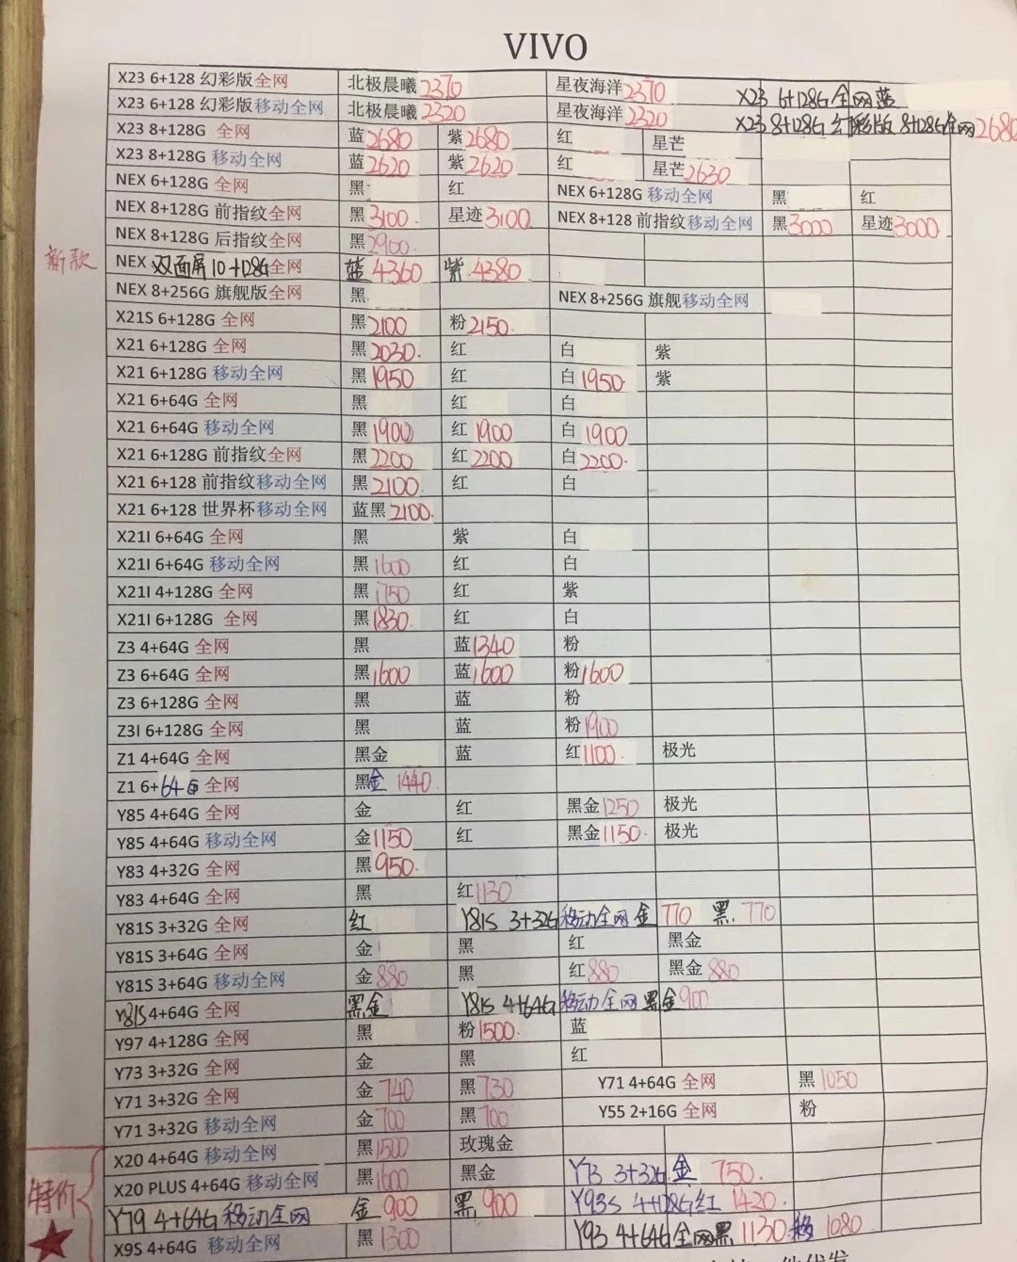 VIVO
X23 6+128 幻彩版全网 北极晨曦2370 星夜海洋2370 X23 6+128G全网蓝
X23 6+128 幻彩版移动全网 北极晨曦2320 星夜海洋2320 X23 8+128G 幻彩版 8+128G全网2680
X23 8+128G 全网 蓝2680 紫2680 红 星芒
X23 8+128G 移动全网 蓝2620 紫2620 红 星芒2630
NEX 6+128G 全网 黑 红 NEX 6+128G 移动全网 黑 红
NEX 8+128G 前指纹全网 黑3100 星迹3100 NEX 8+128 前指纹移动全网 黑3000 星迹3000
NEX 8+128G 后指纹全网 黑2900
新款 NEX 双面屏10+128G全网 蓝4360 紫4380
NEX 8+256G 旗舰版全网 黑 NEX 8+256G 旗舰移动全网
X21S 6+128G 全网 黑2100 粉2150
X21 6+128G 全网 黑2030 红 白 紫
X21 6+128G 移动全网 黑1950 红 白1950 紫
X21 6+64G 全网 黑 红 白
X21 6+64G 移动全网 黑1900 红1900 白1900
X21 6+128G 前指纹全网 黑2200 红2200 白2200
X21 6+128 前指纹移动全网 黑2100 红 白
X21 6+128 世界杯移动全网 蓝黑2100
X21I 6+64G 全网 黑 紫 白
X21I 6+64G 移动全网 黑1600 红 白
X21I 4+128G 全网 黑1750 红 紫
X21I 6+128G 全网 黑1830 红 白
Z3 4+64G 全网 黑 蓝1340 粉
Z3 6+64G 全网 黑1600 蓝1600 粉1600
Z3 6+128G 全网 黑 蓝 粉
Z3I 6+128G 全网 黑 蓝 粉1900
Z1 4+64G 全网 黑金 蓝 红1100 极光
Z1 6+64G 全网 黑金 1440
Y85 4+64G 全网 金 红 黑金1250 极光
Y85 4+64G 移动全网 金1150 红 黑金1150 极光
Y83 4+32G 全网 黑950
Y83 4+64G 全网 黑 红1130
Y81S 3+32G 全网 红 Y81S 3+32G移动全网 金 770 黑 770
Y81S 3+64G 全网 金 黑 红 黑金
Y81S 3+64G 移动全网 金880 黑 红880 黑金880
Y81S 4+64G 全网 黑金 Y81S 4+64G移动全网黑金900
Y97 4+128G 全网 黑 粉1500 蓝
Y73 3+32G 全网 金 黑 红
Y71 3+32G 全网 金740 黑730 Y71 4+64G 全网 黑1050
Y71 3+32G 移动全网 金700 黑700 Y55 2+16G 全网 粉
X20 4+64G 移动全网 黑1500 玫瑰金
特价 X20 PLUS 4+64G 移动全网 黑1600 黑金 Y73 3+32G 金 750
Y79 4+64G移动全网 金900 黑900 Y93S 4+128G红 1420
X9S 4+64G 移动全网 黑1300 Y93 4+64G全网黑1130 移1080